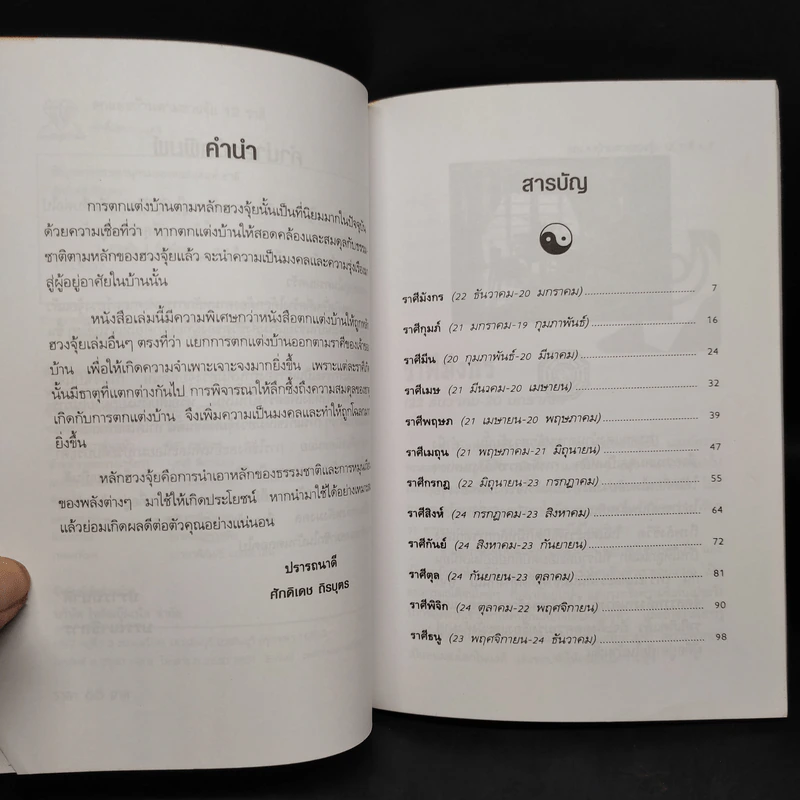 คำนำ
การตกแต่งบ้านตามหลักฮวงจุ้ยนั้นเป็นที่นิยมมากในปัจจุบัน
ด้วยความเชื่อที่ว่า หากตกแต่งบ้านให้สอดคล้องและสมดุลกับธรรม-
ชาติตามหลักของฮวงจุ้ยแล้ว จะนำความเป็นมงคลและความรุ่งเรืองมา
สู่ผู้อยู่อาศัยในบ้านนั้น
หนังสือเล่มนี้มีความพิเศษกว่าหนังสือตกแต่งบ้านให้ถูกหลัก
ฮวงจุ้ยเล่มอื่นๆ ตรงที่ว่า แยกการตกแต่งบ้านออกตามราศีของเจ้าของ
บ้าน เพื่อให้เกิดความจำเพาะเจาะจงมากยิ่งขึ้น เพราะแต่ละราศี
นั้นมีธาตุที่แตกต่างกันไป การพิจารณาให้ลึกซึ้งถึงความสมดุลของธาตุ
เกิดกับการตกแต่งบ้าน จึงเพิ่มความเป็นมงคลและทำให้ถูกโฉลกมาก
ยิ่งขึ้น
หลักฮวงจุ้ยคือการนำเอาหลักของธรรมชาติและการหมุนเวียน
ของพลังต่างๆ มาใช้ให้เกิดประโยชน์ หากนำมาใช้ได้อย่างเหมาะสม
แล้วย่อมเกิดผลดีต่อตัวคุณอย่างแน่นอน
ปรารถนาดี
ศักดิเดช ถิรบุตร
สารบัญ
ราศีมังกร (22 ธันวาคม-20 มกราคม) 7
ราศีกุมภ์ (21 มกราคม-19 กุมภาพันธ์) 16
ราศีมีน (20 กุมภาพันธ์-20 มีนาคม) 24
ราศีเมษ (21 มีนวคม-20 เมษายน) 32
ราศีพฤษภ (21 เมษายน-20 พฤษภาคม) 39
ราศีเมถุน (21 พฤษภาคม-21 มิถุนายน) 47
ราศีกรกฎ (22 มิถุนายน-23 กรกฎาคม) 55
ราศีสิงห์ (24 กรกฎาคม-23 สิงหาคม) 64
ราศีกันย์ (24 สิงหาคม-23 กันยายน) 72
ราศีตุล (24 กันยายน-23 ตุลาคม) 81
ราศีพิจิก (24 ตุลาคม-22 พฤศจิกายน) 90
ราศีธนู (23 พฤศจิกายน-24 ธันวาคม) 98